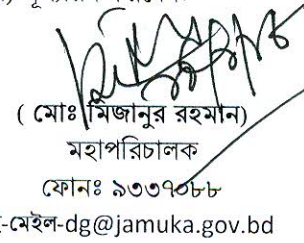 ( মোঃ মিজানুর রহমান)
মহাপরিচালক
ফোনঃ ৯৩৩৭০৮৮
-মেইল-dg@jamuka.gov.bd